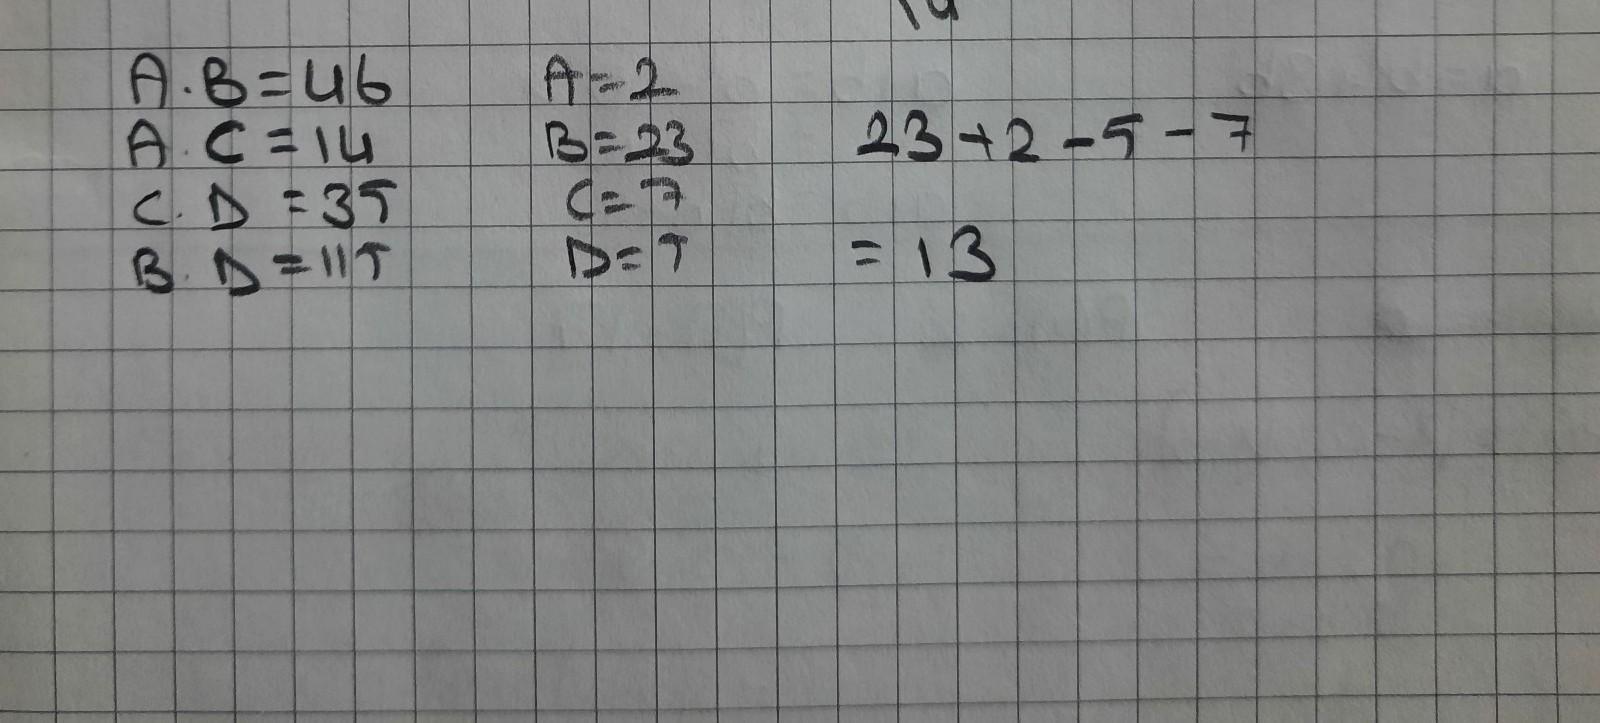 A.B=46
A.C=14
C.D=35
B.D=115
A=2
B=23
C=7
D=5
23+2-5-7
=13